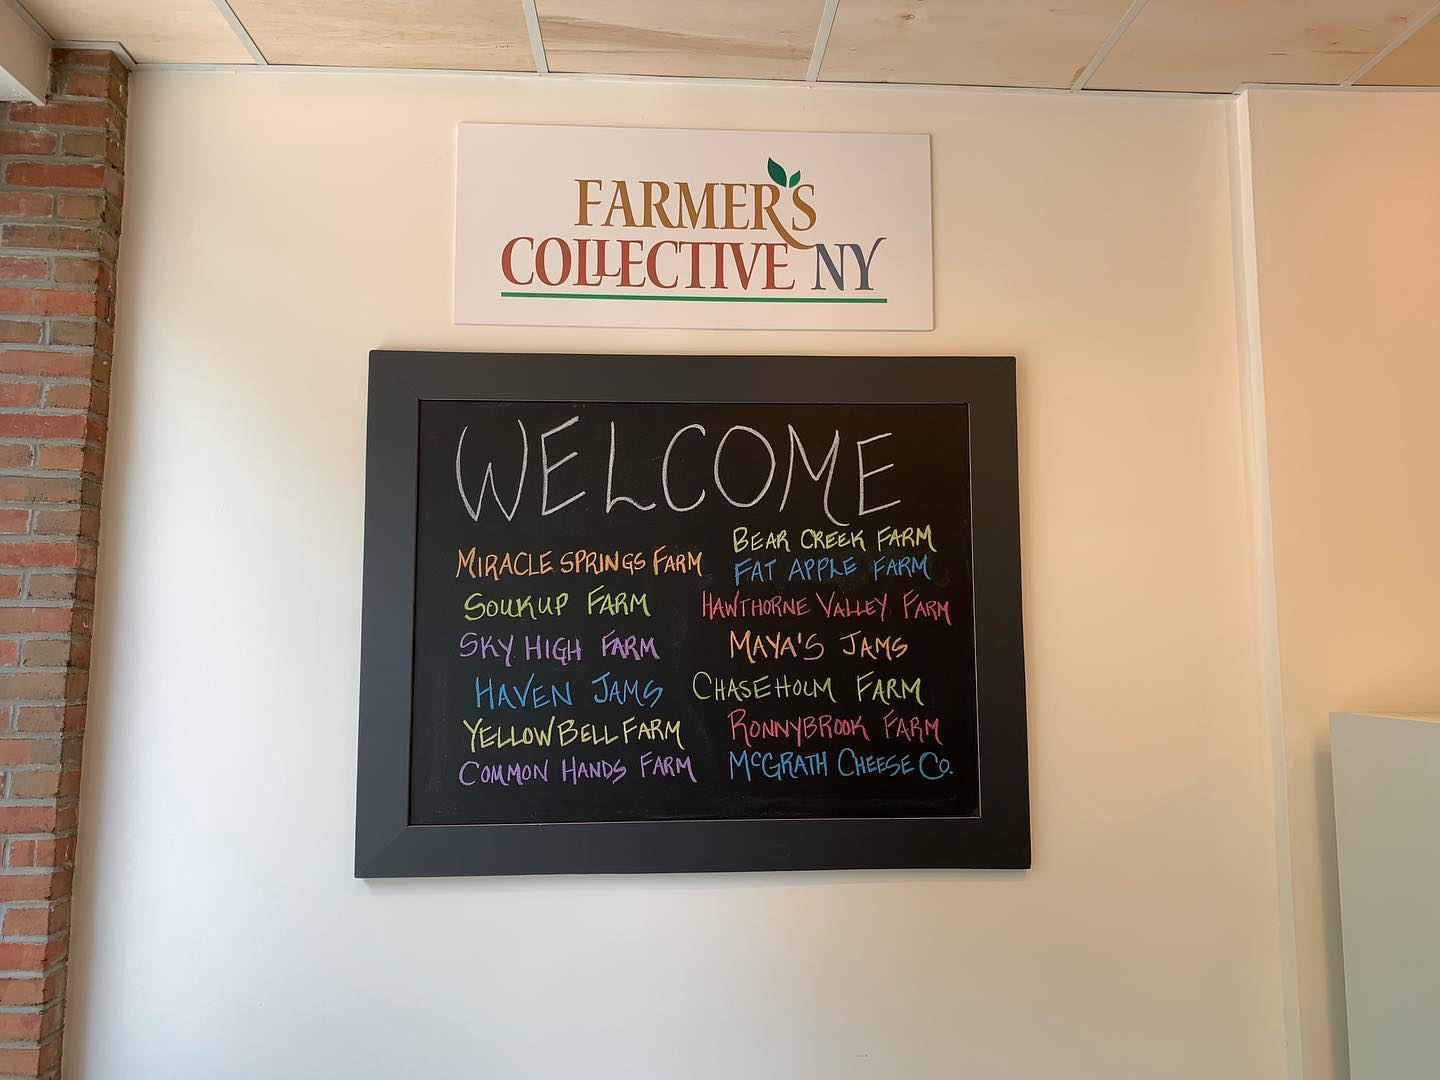 FARMER'S
COLLECTIVE NY
WELCOME
MIRACLE SPRINGS FARM
SOUKUP FARM
SKY HIGH FARM
HAVEN JAMS
YELLOW BELL FARM
COMMON HANDS FARM
BEAR CREEK FARM
FAT APPLE FARM
HAWTHORNE VALLEY FARM
MAYA'S JAMS
CHASEHOLM FARM
RONNYBROOK FARM
McGRATH CHEESE CO.